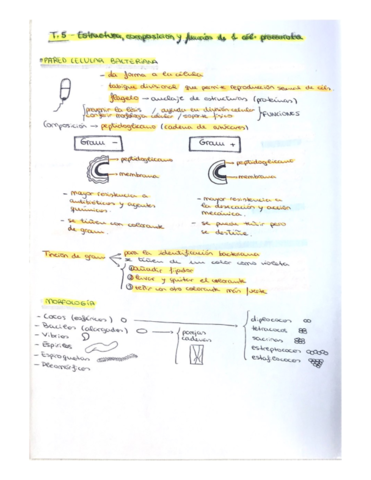 T.5 - Estructura, composición y función de la cél. procariota
PARED CELULAR BACTERIANA
- da forma a la célula
tabique divisional que permite reproducción sexual de céls.
flagelo → anclaje de estructuras (proteínas)
/ ayuda en división celular
/ soporte físico
FUNCIONES
Composición → peptidoglicano (cadena de azúcares)
Gram -
Gram +
peptidoglicano
peptidoglicano
membrana
membrana
- mayor resistencia a antibióticos y agentes químicos.
- mayor resistencia a la desecación y acción mecánica.
- se tiñen con colorante de gram.
- se puede teñir pero se destiñe.
Tinción de gram
para la identificación bacteriana
se tiñen de un color como violeta
① fijador
② lavar y quitar el colorante
③ teñir con otro colorante más fuerte
MORFOLOGÍA
- Cocos (esféricos)
- Bacilos (alargados)
- Vibrios
- Espirilos
- Espiroquetas
- Pleomórficos
parejas
cadenas
diplococos
tetracocos
sarcinas
estreptococos
estafilococos